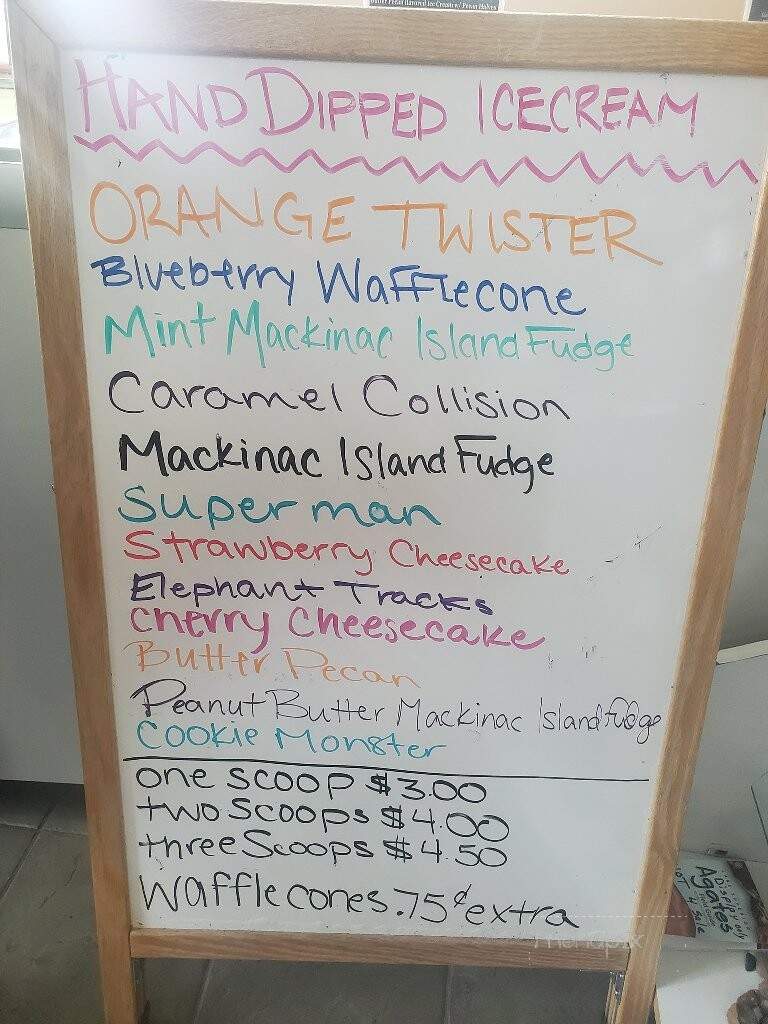 Butter Pecan flavored Ice Cream w/ Pecan Halves
HAND DIPPED ICECREAM
ORANGE TWISTER
Blueberry Wafflecone
Mint Mackinac Island Fudge
Caramel Collision
Mackinac Island Fudge
Superman
Strawberry Cheesecake
Elephant Tracks
Cherry Cheesecake
Butter Pecan
Peanut Butter Mackinac Island fudge
Cookie Monster
one scoop $3.00
two Scoops $4.00
three Scoops $4.50
Waffle cones .75¢ extra
Display only
Agates
NOT 4 Sale
menupix